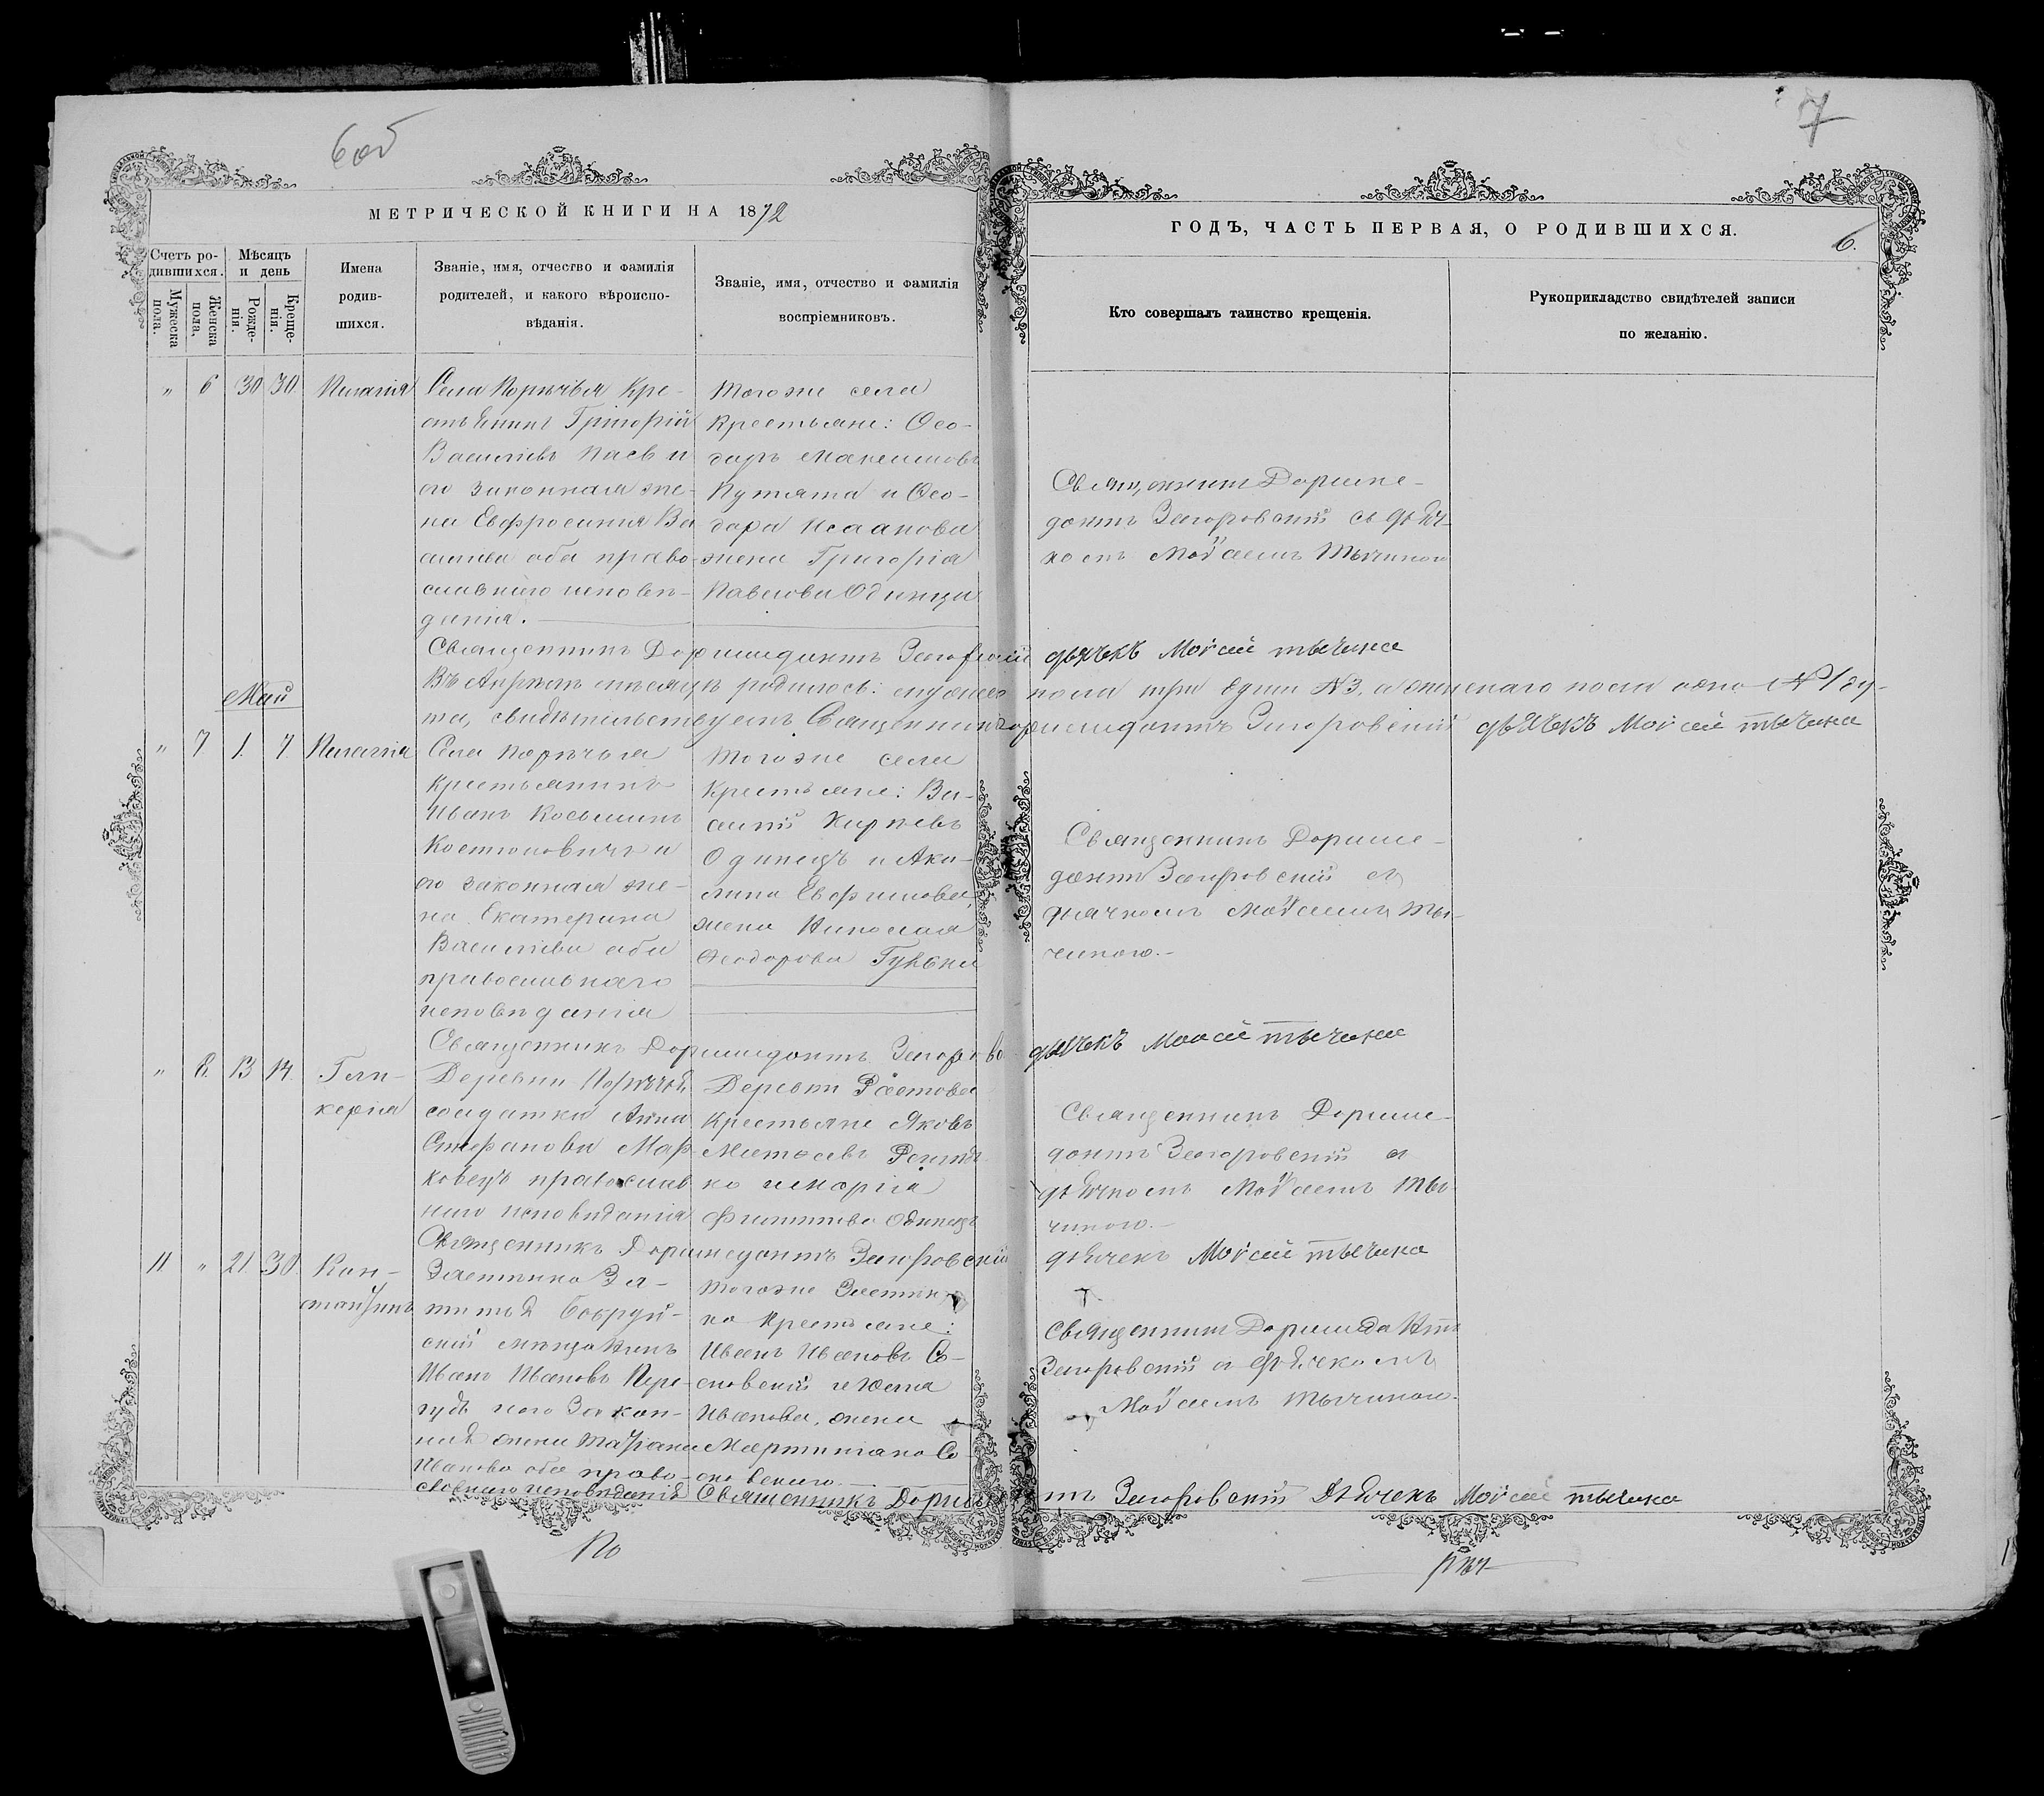 6 об
7
МЕТРИЧЕСКОЙ КНИГИ НА 1872
ГОДЪ, ЧАСТЬ ПЕРВАЯ, О РОДИВШИХСЯ.
6.
Счетъ ро-
дившихся.
Мужеска
пола.
Женска
пола.
Мѣсяцъ
и день
Рожде-
нія.
Креще-
нія.
Имена
родив-
шихся.
Званіе, имя, отчество и фамилія
родителей, и какого вѣроиспо-
вѣданія.
Званіе, имя, отчество и фамилія
воспріемниковъ.
Кто совершалъ таинство крещенія.
Рукоприкладство свидѣтелей записи
по желанію.
" 6 30 30. Пелагія
Села Порѣчья Кре-
стьянинъ Григорій
Василіевъ и
его законная же-
на Евфросинія Ва
силіева оба право-
славнаго исповѣ-
данія.
Тогоже села
Крестьяне: Ѳео-
доръ Максимовъ
Путята и Ѳео-
дора Исаакова
жена Григорія
Павлова Одинца
Священникъ Дориме-
донтъ Загоровскій съ дьяч-
комъ Моѵсеемъ Тычиною
Священникъ Доримедонтъ Загоровскій дьячекъ Моѵсей Тычина
Въ Апрѣлѣ мѣсяцѣ родилось: мужеска пола три души №3, а женскаго пола одно №1 ду-
ша, свидѣтельствуемъ Священникъ Доримедонтъ Загоровскій дьячекъ Моѵсей Тычина
Май
" 7 1. 7. Пелагія
Села Порѣчья
Крестьянинъ
Иванъ Косьминъ
Костюковичъ и
его законная же-
на Екатерина
Василіева оба
православнаго
исповѣданія
Тогоже села
Крестьяне: Ва-
силій Карпевъ
Одинецъ и Аки-
лина Евфимова,
жена Николая
Ѳеодорова
Священникъ Дориме-
донтъ Загоровскій съ
дьячкомъ Моѵсеемъ Ты-
чиною.-
Священникъ Доримедонтъ Загоровс дьячекъ Моисей Тычина
" 8. 13 14. Гли-
керія
Деревни Порѣчья
солдатка Анна
Стефанова Мар-
ковецъ православ
наго исповѣданія
Деревни Ростова
Крестьяне Яковъ
ко и Марія
Филиппова Одинецъ
Священникъ Дориме-
донтъ Загоровскій съ
дьячкомъ Моѵсеемъ Ты-
чиною.-
Священникъ Доримедонтъ Загоровскій дьячекъ Моѵсей Тычина
11 " 21. 30. Кон-
стантинъ
Застѣнка За-
Бобруй-
скій мѣщанинъ
Иванъ Ивановъ Пере-
гудъ и его Закон-
ная жена Татіана
Иванова оба право-
славнаго исповѣданія
Тогоже Застѣн
ка Крестьяне:
Иванъ Ивановъ Со-
сновскій и
Иванова, жена
Мартиніана Со-
сновскаго.
Священникъ Доримедонтъ
Загоровскій съ дьячкомъ
Моѵсеемъ Тычиною.
Священникъ Доримедонтъ Загоровскій Дьячекъ Моѵсей Тычина
По
рѣч